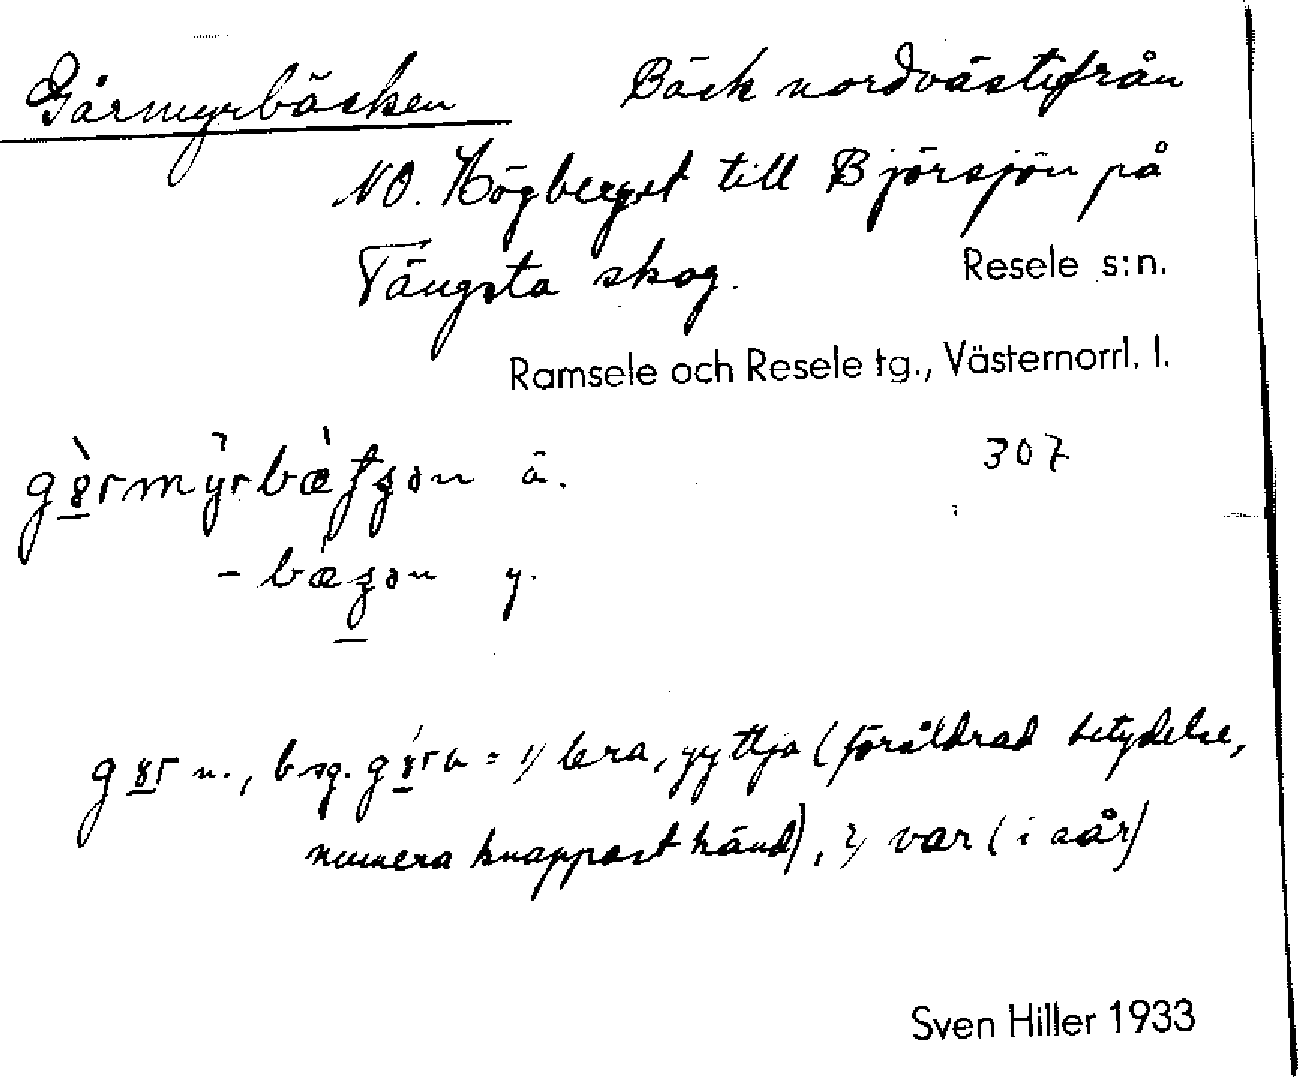 Gårmyrbäcken Bäck nordvästifrån
NO. Högberget till Björsjön på
Tängsta skog. Resele s:n.
Ramsele och Resele tg., Västernorrl. l.
307
ä.
y.
n., b. sg. = 1) lera, gyttja (föråldrad betydelse,
numera knappast känd), 2) var (i sår)
Sven Hiller 1933